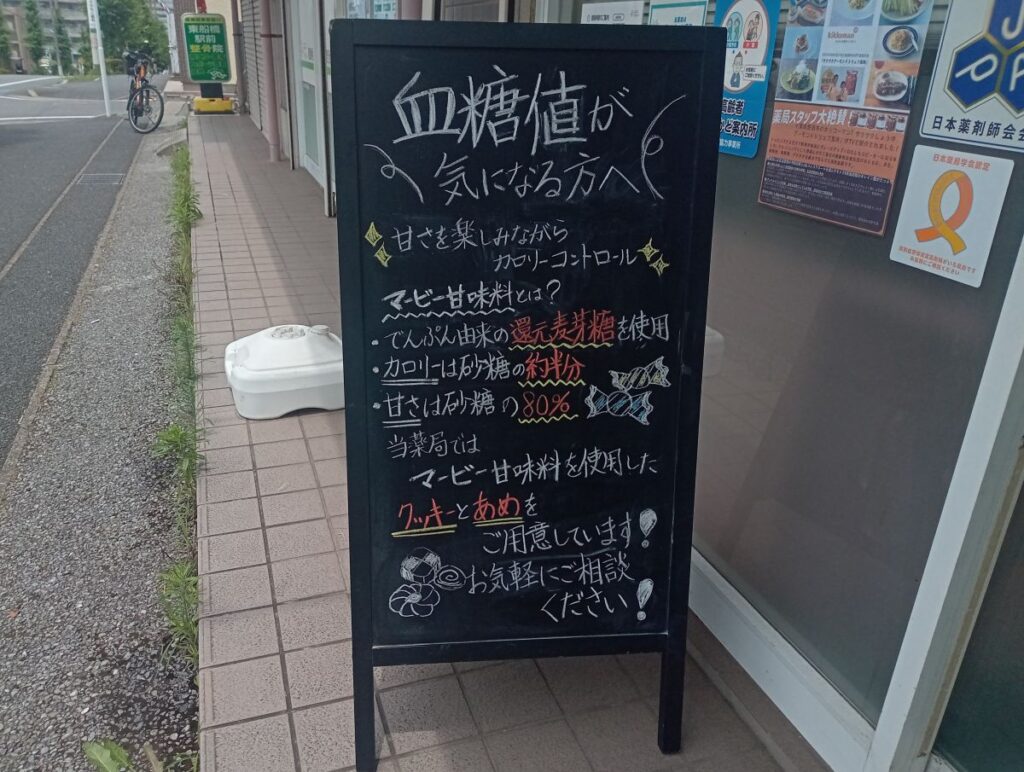 東船橋
駅前
整骨院
血糖値が
気になる方へ
甘さを楽しみながら
カロリーコントロール
マービー甘味料とは?
・でんぷん由来の還元麦芽糖を使用
・カロリーは砂糖の約半分
・甘さは砂糖の80%
当薬局では
マービー甘味料を使用した
クッキーとあめを
ご用意しています!
お気軽にご相談
ください!
kikkoman
薬局スタッフ大絶賛!
高齢者
J
P P
日本薬剤師会
日本薬局学会認定